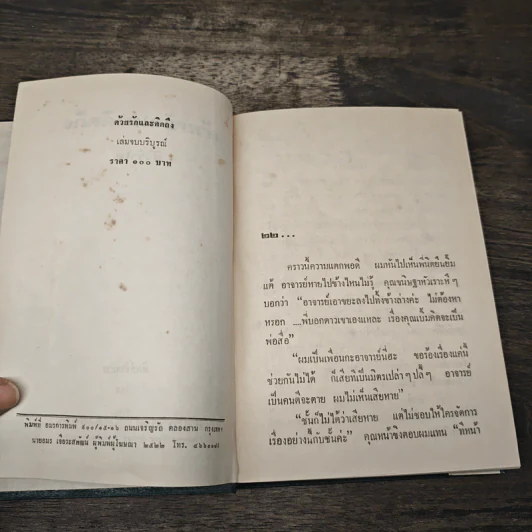 ด้วยรักและคิดถึง
เล่มจบบริบูรณ์
ราคา ๑๐๐ บาท
พิมพ์ที่ ธนะการพิมพ์ ถนนเจริญรัถ คลองสาน กรุงเทพฯ
ผู้พิมพ์ผู้โฆษณา ๒๕๒๒ โทร.
๒๒...
คราวนี้ความแตกพอดี ผมหันไปเห็นพินิตยืนยิ้ม
แต้ อาจารย์หายไปข้างไหนไม่รู้ คุณขนิษฐาหัวเราะหึ ๆ
บอกว่า “อาจารย์เอาขยะลงไปทิ้งข้างล่างค่ะ ไม่ต้องหา
หรอก ....พี่บอกดาวเขาเองแหละ เรื่องคุณเบิ้มคิดจะเป็น
พ่อสื่อ”
“ผมเป็นเพื่อนกะอาจารย์นี่ฮะ ขอร้องเรื่องแค่นี้
ช่วยกันไม่ได้ ก็เสียทีเป็นมิตรเปล่า ๆ ปลี้ ๆ อาจารย์
เป็นคนดีจะตาย ผมไม่เห็นเสียหาย”
“ชั้นก็ไม่ได้ว่าเสียหาย แต่ไม่ชอบให้ใครจัดการ
เรื่องอย่างนี้กับชั้นค่ะ” คุณหน้าขิงตอบผมแทน “ทีหน้า